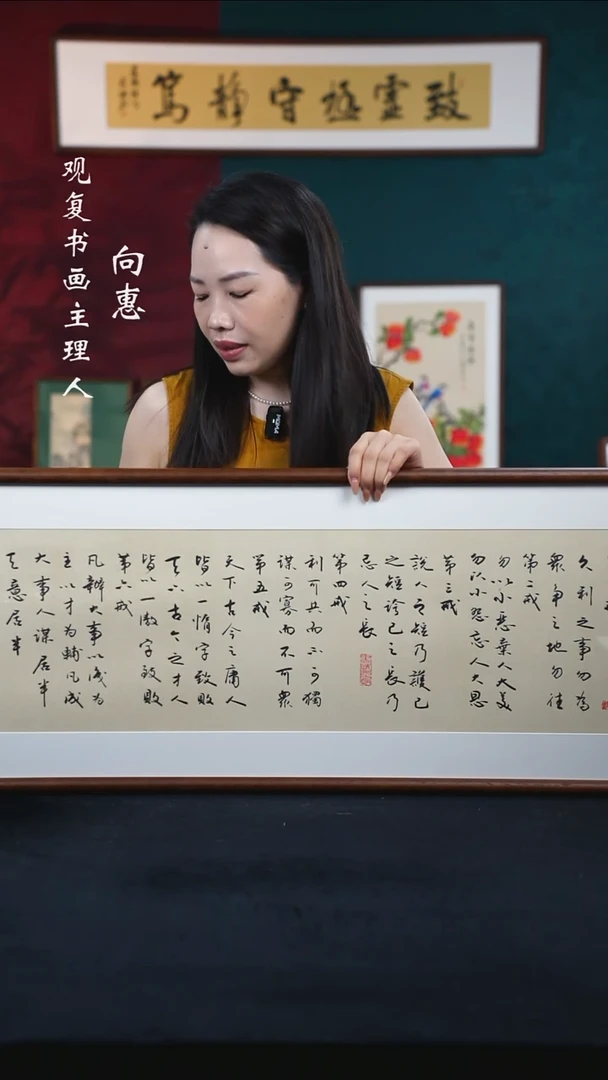 致虛極守靜篤
观复书画主理人
向惠
久利之事勿為
衆爭之地勿往
第二戒
勿以小惡棄人大美
勿以小怨忘人大恩
第三戒
說人之短乃護己
之短誇己之長乃
忌人之長
第四戒
利可共而不可獨
謀可寡而不可衆
第五戒
天下古今之庸人
皆以一惰字致敗
天下古今之才人
皆以一傲字致敗
第六戒
凡辦大事以識為
主以才為輔凡成
大事人謀居半
天意居半